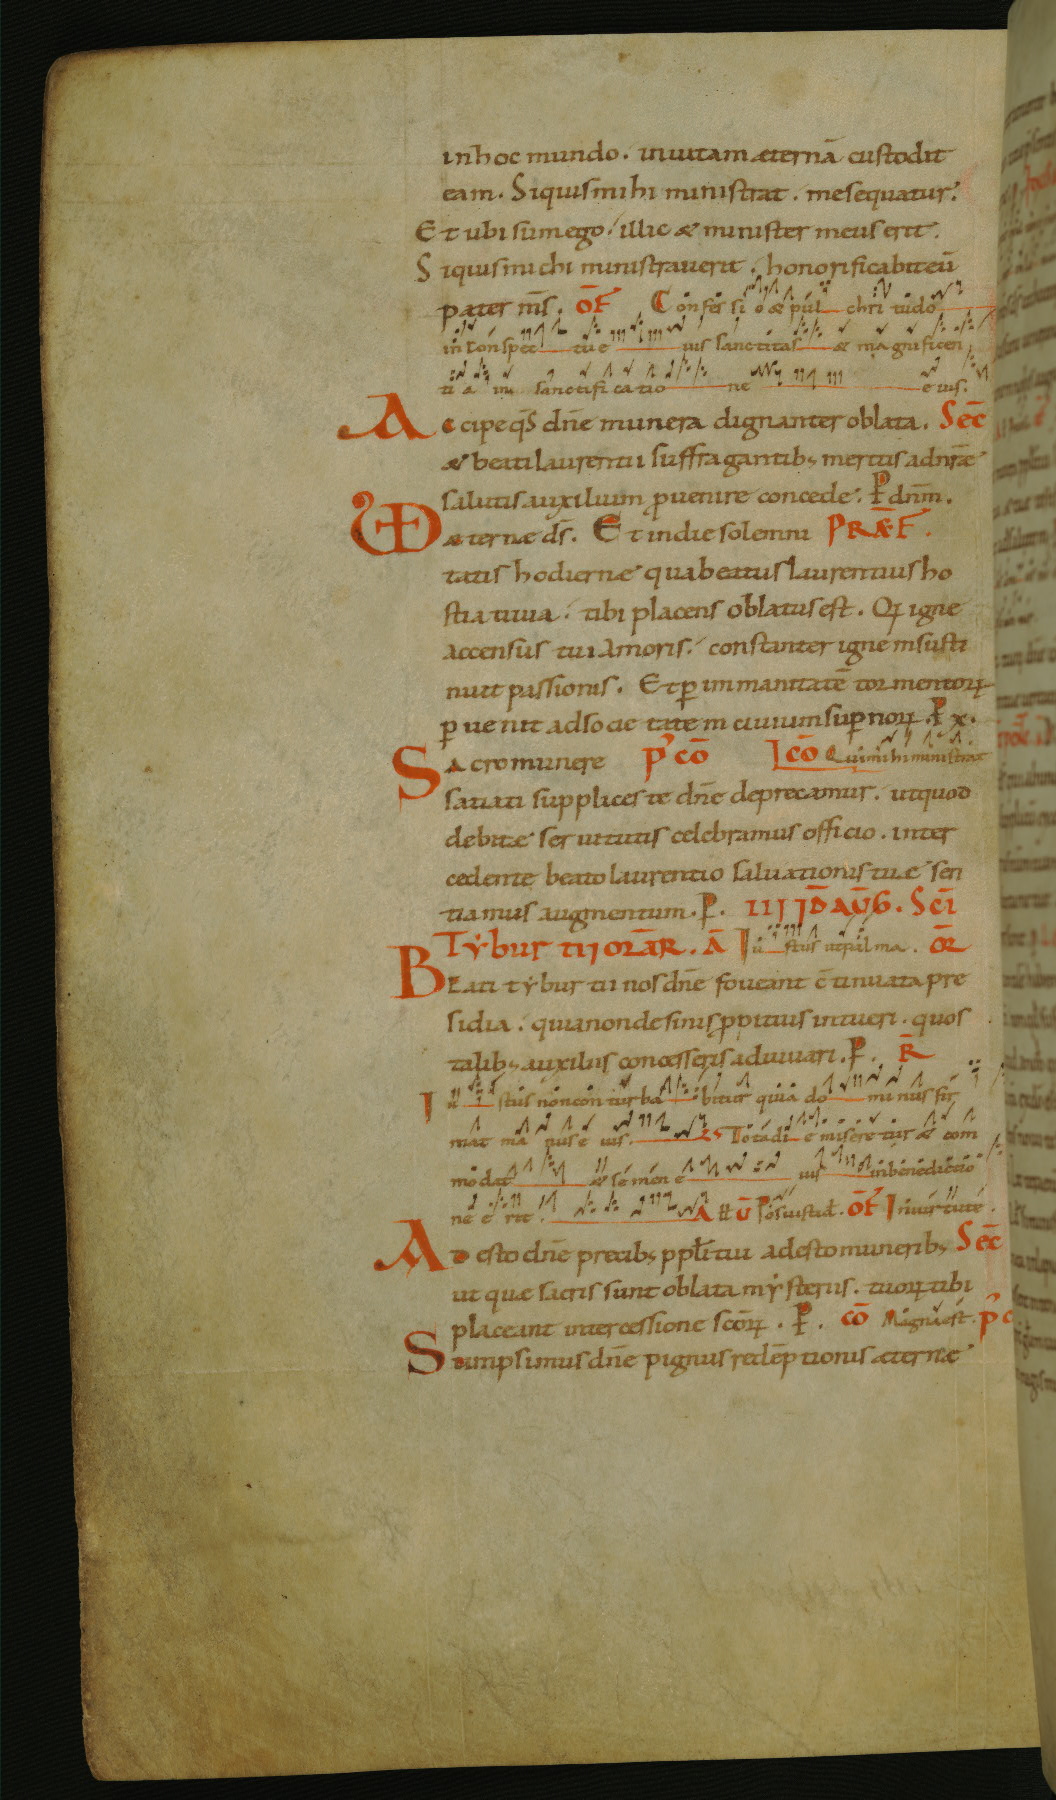 inhoc mundo. inuitam æternā custodit
eam. Siquis mihi ministrat. me sequatur.
Et ubi sum ego. illic & minister meus erit.
Siquis michi ministrauerit. honorificabit eū
pater m̄s. OF̄ Confessi o & pul chri tudo
in conspec tu e ius sanctitas & magnificen
ti a in sanctifi catio ne e ius.
Accipe qs̄ dn̄e munera dignanter oblata. SEC̄
& beati laurentii suffragantib; meritis ad nr̄æ
salutis auxilium ꝓuenire concede. P dnm̄.
VD æternæ ds̄. Et in die solemni PRÆF̄.
tatis hodiernæ qua beatus laurentius ho
stia uiua. tibi placens oblatus est. Qui igne
accensus tui amoris. constanter ignem susti
nuit passionis. Et ꝑ immanitatē tormentoꝝ
ꝑuenit ad societatem ciuium suꝑnoꝝ. P x.
Sacro munere P' CŌ CŌ Qui mihi ministrat
satiati supplices te dn̄e deprecamur. ut quod
debitæ seruitutis celebramus officio. inter
cedente beato laurentio saluationis tuæ sen
tiamus augmentum. P. IIII ID̄ AŪG. SC̄I
TYBURTII ORAR̄. Ā Iu stus ut pal ma. OR̄
Beati tyburtii nos dn̄e foueant c̄tinuata pre
sidia. quia non desinis ꝓpitius intueri. quos
talib; auxiliis concesseris adiuuari. P. R̄
Iu stus non con turba bitur quia do minus fir
mat ma nus e ius. Tota di e misere tur & com
modat & se men e ius in benedictio
ne e rit. A ll Ū Posuisti d. OF̄ In uirtute.
Adesto dn̄e precib; ppl̄i tui adesto munerib; SEC̄
ut quæ sacris sunt oblata mysteriis. tuoꝝ tibi
placeant intercessione sc̄oꝝ. P. CŌ Magna est. P' C
Sumpsimus dn̄e pignus redēptionis æternæ